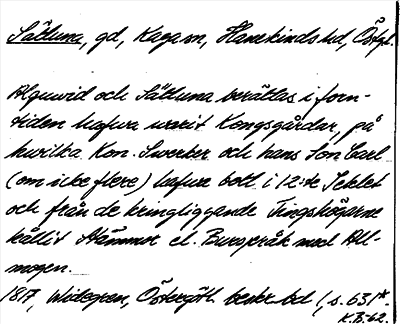 Sätuna, gd, Kaga sn, Hanekinds hd, Östgl.
Alguvid och Sätuna berättas i forn-
tiden hafva warit Kongsgårdar, på
hwilka Kon. Swerker och hans Son Carl
(om icke flere) hafva bott i 12:te Seklet
och från de kringliggande Tingshögarne
hållit Stämmor el. Burspråk med All-
mogen.
1817, Widegren, Östergötl. beskr. bd 1, s. 631*.
K.B-62.